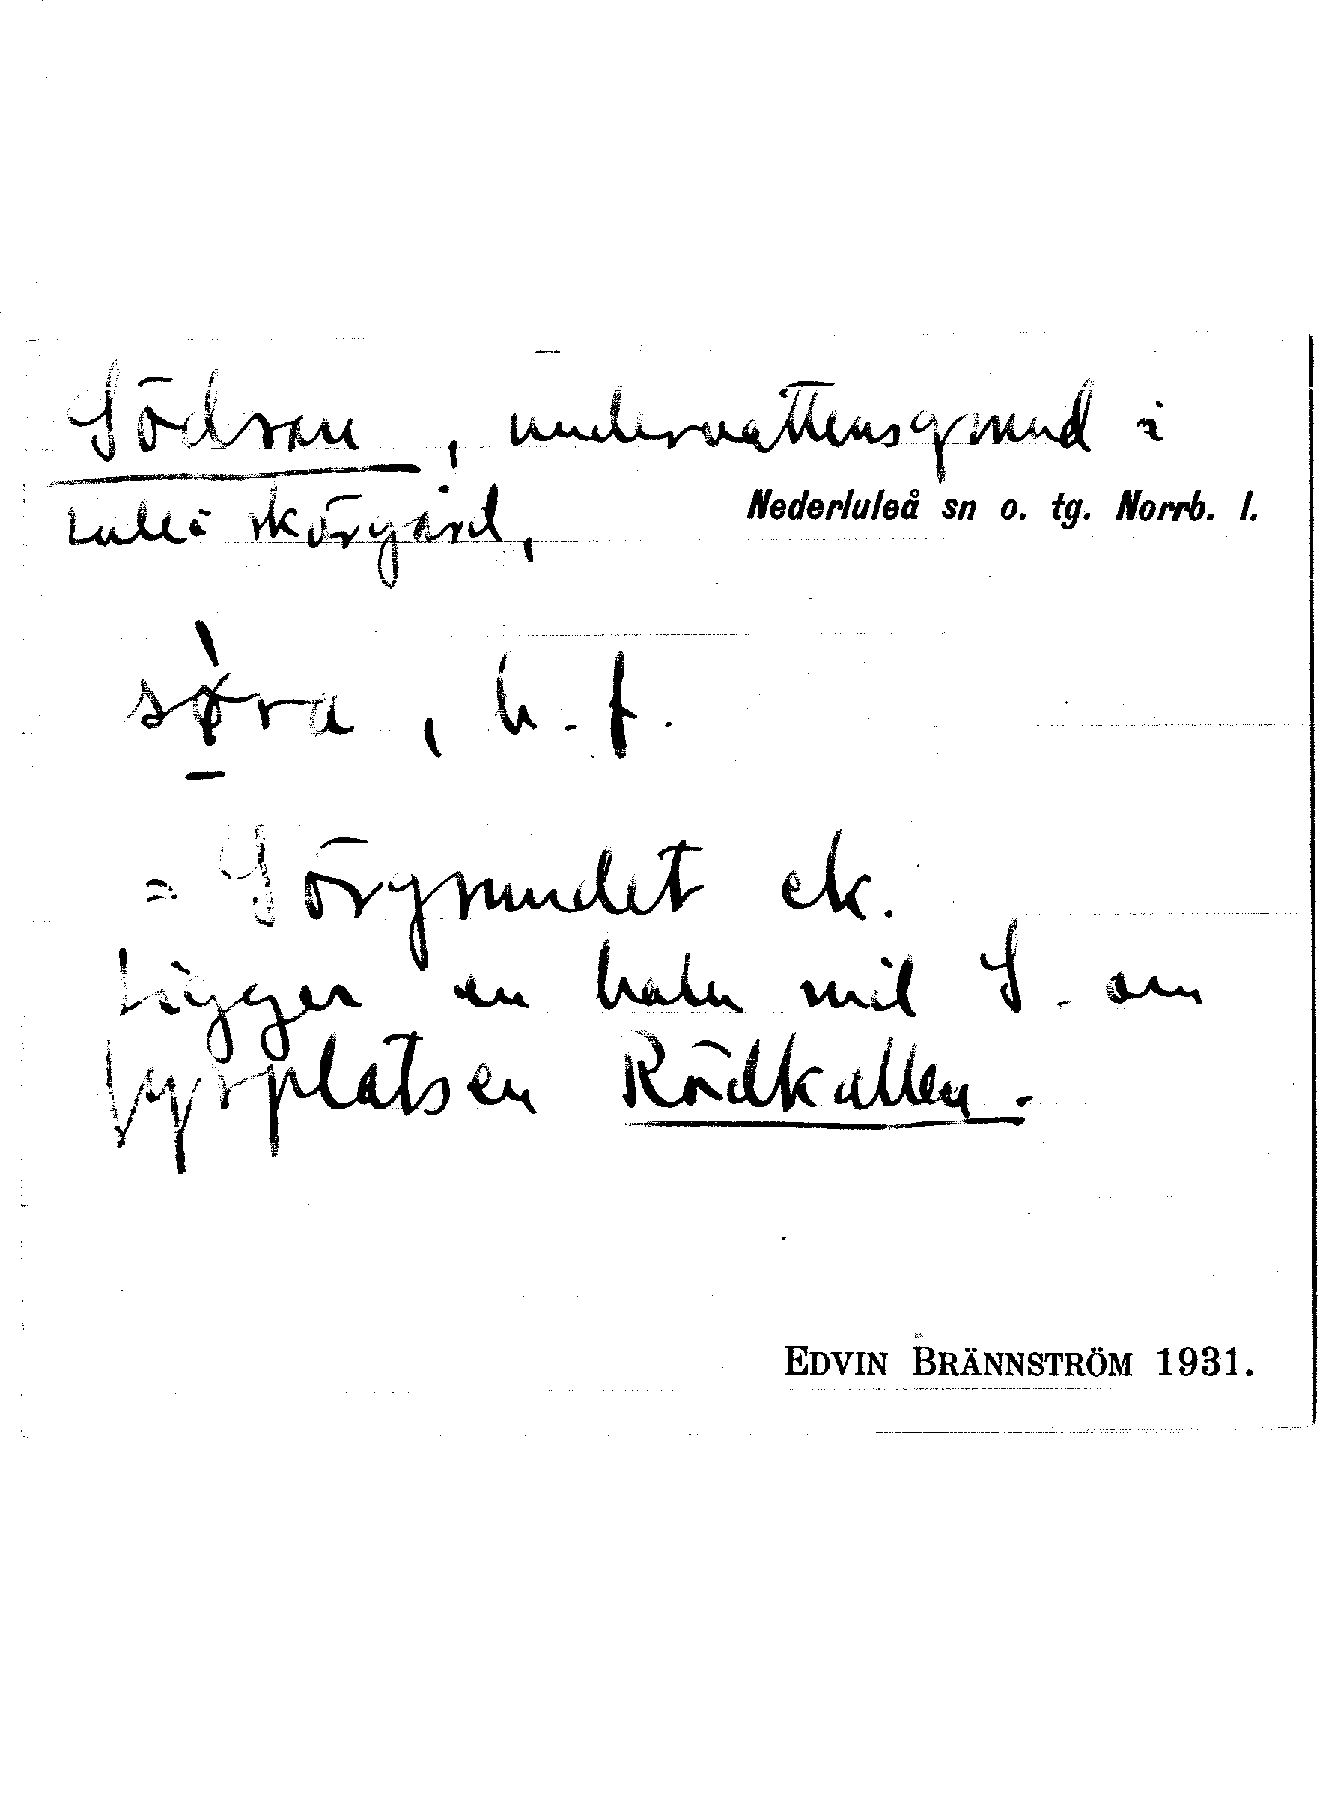 Södran, undervattensgrund i
Nederluleå sn o. tg. Norrb. l.
Luleå skärgård,
sø̱̀ra, b. f.
= Sörgrundet ek.
Ligger en halv mil S. om
fyrplatsen Rödkallen.
EDVIN BRÄNNSTRÖM 1931.